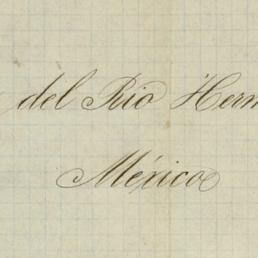 del Rio Herm
México